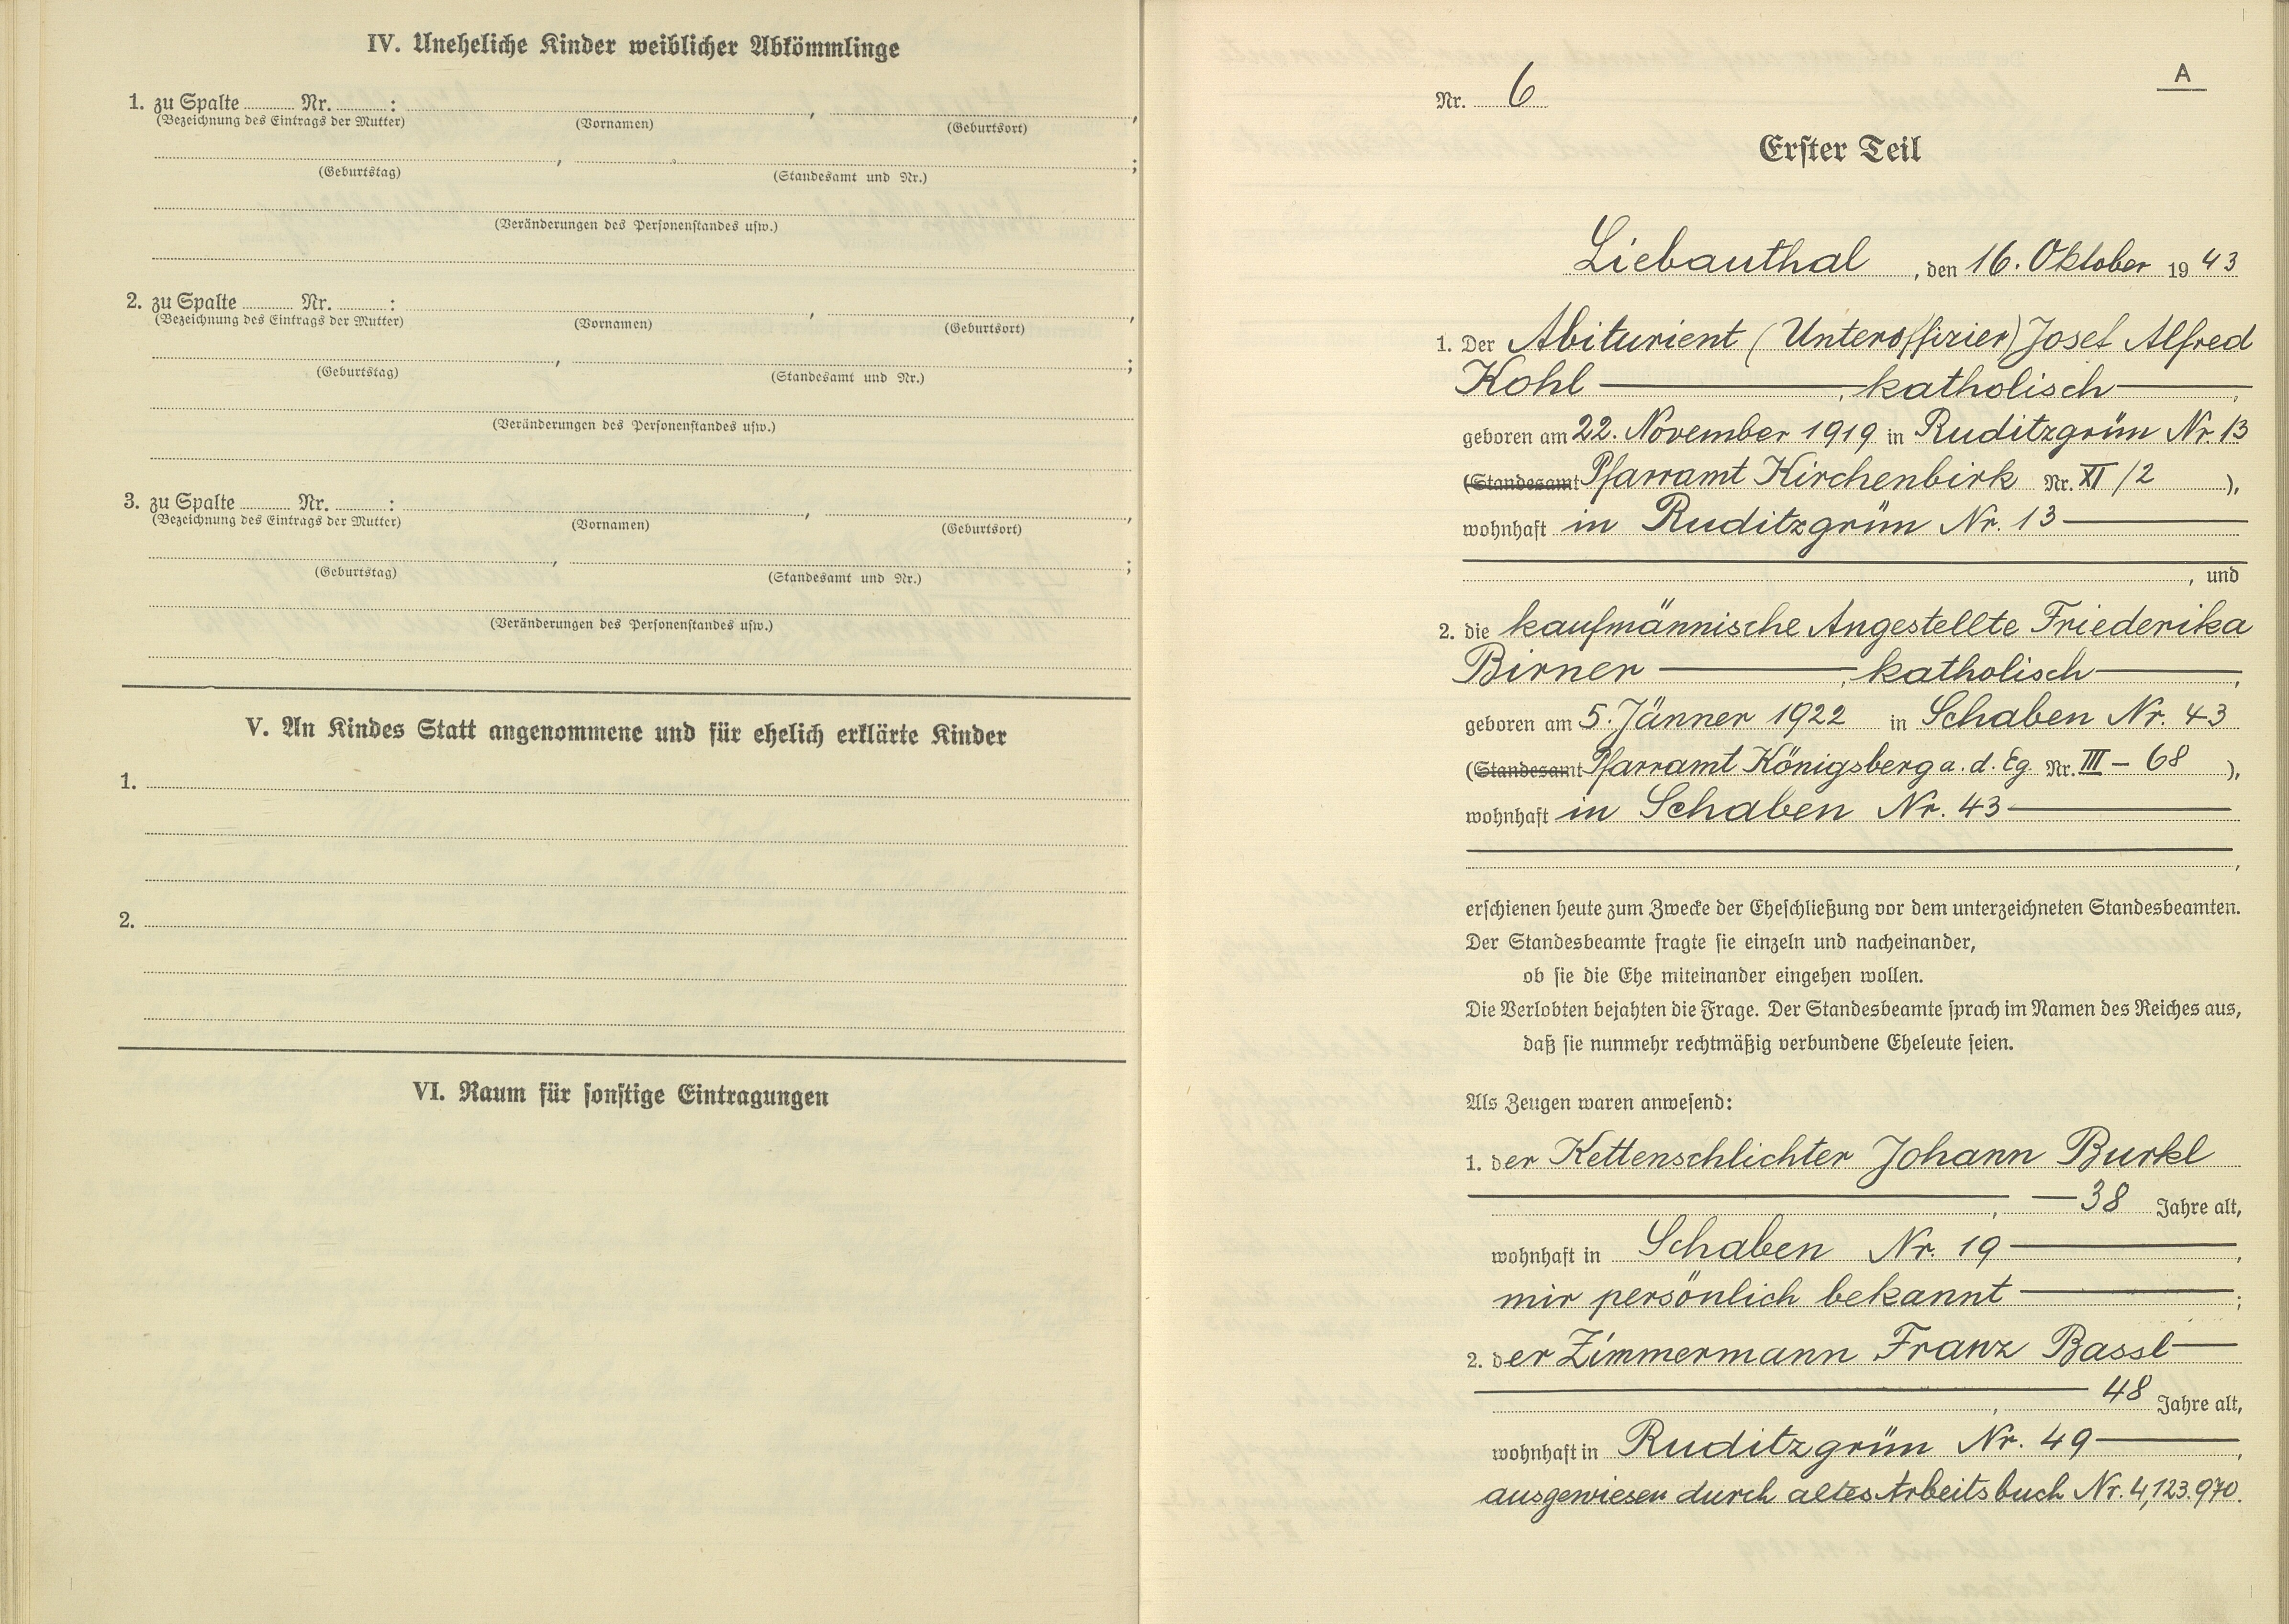 IV. Uneheliche Kinder weiblicher Abkömmlinge
1. zu Spalte ........ Nr. ........ : ........ , ........ ,
(Bezeichnung des Eintrags der Mutter) (Vornamen) (Geburtsort)
........ , ........ ;
(Geburtstag) (Standesamt und Nr.)
(Veränderungen des Personenstandes usw.)
2. zu Spalte ........ Nr. ........ : ........ , ........ ,
(Bezeichnung des Eintrags der Mutter) (Vornamen) (Geburtsort)
........ , ........ ;
(Geburtstag) (Standesamt und Nr.)
(Veränderungen des Personenstandes usw.)
3. zu Spalte ........ Nr. ........ : ........ , ........ ,
(Bezeichnung des Eintrags der Mutter) (Vornamen) (Geburtsort)
........ , ........ ;
(Geburtstag) (Standesamt und Nr.)
(Veränderungen des Personenstandes usw.)
V. An Kindes Statt angenommene und für ehelich erklärte Kinder
1.
2.
VI. Raum für sonstige Eintragungen
A
Nr. 6
Erster Teil
Liebauthal , den 16. Oktober 1943
1. Der Abiturient (Unteroffizier) Josef Alfred
Kohl , katholisch ,
geboren am 22. November 1919 in Ruditzgrün Nr. 13
(Standesamt Pfarramt Kirchenbirk Nr. XI/2 ),
wohnhaft in Ruditzgrün Nr. 13
, und
2. die kaufmännische Angestellte Friederika
Birner , katholisch ,
geboren am 5. Jänner 1922 in Schaben Nr. 43
(Standesamt Pfarramt Königsberg a. d. Eg. Nr. III – 68 ),
wohnhaft in Schaben Nr. 43
,
erschienen heute zum Zwecke der Eheschließung vor dem unterzeichneten Standesbeamten.
Der Standesbeamte fragte sie einzeln und nacheinander,
ob sie die Ehe miteinander eingehen wollen.
Die Verlobten bejahten die Frage. Der Standesbeamte sprach im Namen des Reiches aus,
daß sie nunmehr rechtmäßig verbundene Eheleute seien.
Als Zeugen waren anwesend:
1. der Kettenschlichter Johann Burkl
, 38 Jahre alt,
wohnhaft in Schaben Nr. 19 ,
mir persönlich bekannt ;
2. der Zimmermann Franz Bassl
, 48 Jahre alt,
wohnhaft in Ruditzgrün Nr. 49 ,
ausgewiesen durch altes Arbeitsbuch Nr. 4,123.970.